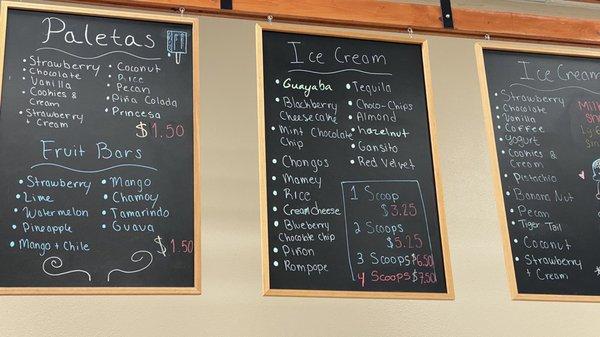 Paletas
• Strawberry
• Chocolate
• Vanilla
• Cookies &
Cream
• Strawberry
+ Cream
• Coconut
• Rice
• Pecan
• Piña Colada
• Princesa
$1.50
Fruit Bars
• Strawberry
• Lime
• Watermelon
• Pineapple
• Mango + Chile
• Mango
• Chamoy
• Tamarindo
• Guava
$1.50
Ice Cream
• Guayaba
• Blackberry
Cheesecake
• Mint Chocolate
Chip
• Chongos
• Mamey
• Rice
• Cream Cheese
• Blueberry
• Chocolate chip
• Piñon
• Rompope
• Tequila
• Choco-Chips
• Almond
• hazelnut
• Gansito
• Red Velvet
1 Scoop
$3.25
2 Scoops
$5.25
3 Scoops $6.50
4 Scoops $7.50
Ice Cream
• Strawberry
• Chocolate
• Vanilla
• Coffee
• Yogurt
• Cookies &
Cream
• Pistachio
• Banana Nut
• Pecan
• Tiger Tail
• Coconut
• Strawberry
+ Cream